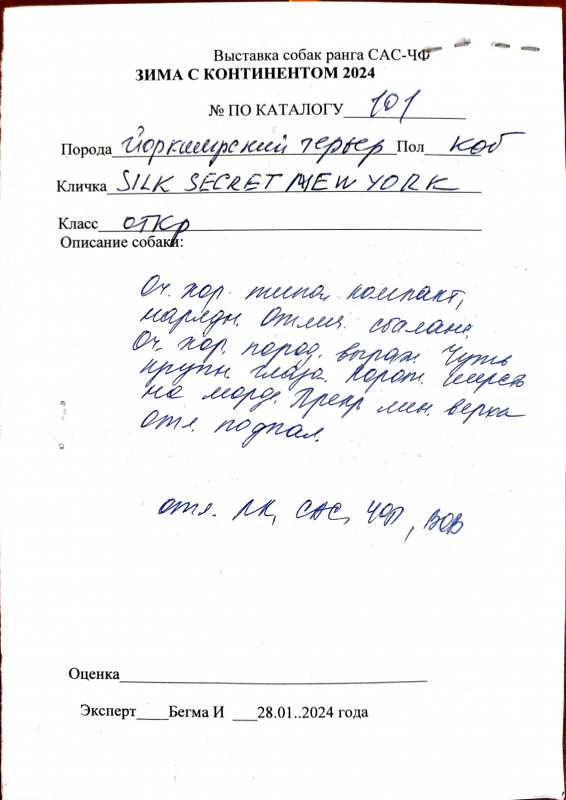 Выставка собак ранга САС-ЧФ
ЗИМА С КОНТИНЕНТОМ 2024
№ ПО КАТАЛОГУ 101
Порода Йоркширский терьер Пол коб
Кличка SILK SECRET NEW YORK
Класс откр
Описание собаки:
Оч. хор. типа, компакт,
нарядн. Отлич. сбаланс.
Оч. хор. пород. выраж. Чуть
крупн. глаза. Корот. шерсть
на морде. Прекр. лин. верха
отл. подпал.
отл. ЛК, САС, ЧФ, ВОВ
Оценка
Эксперт Бегма И 28.01..2024 года